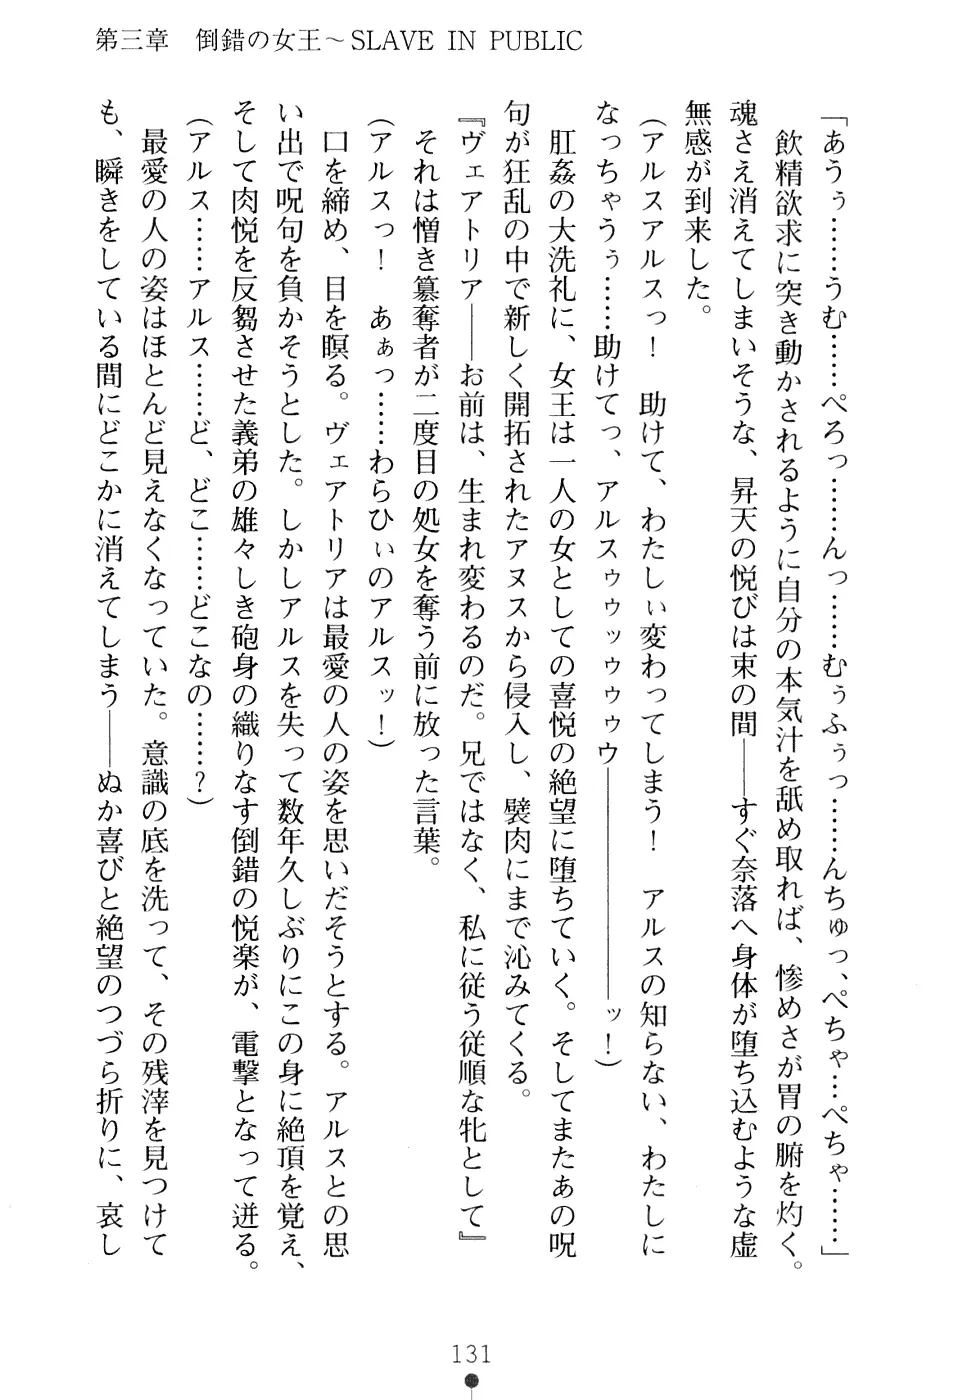 第三章　倒錯の女王～SLAVE IN PUBLIC
「あうぅ……うむ……ぺろっ……んっ……むぅふぅっ……んちゅっ、ぺちゃ…ぺちゃ……」
　飲精欲求に突き動かされるように自分の本気汁を舐め取れば、惨めさが胃の腑を灼く。
魂さえ消えてしまいそうな、昇天の悦びは束の間――すぐ奈落へ身体が堕ち込むような虚
無感が到来した。
（アルスアルスっ！　助けて、わたしぃ変わってしまう！　アルスの知らない、わたしに
なっちゃうぅ……助けてっ、アルスゥゥッゥゥゥウ――――――――ッ！）
　肛姦の大洗礼に、女王は一人の女としての喜悦の絶望に堕ちていく。そしてまたあの呪
句が狂乱の中で新しく開拓されたアヌスから侵入し、襞肉にまで沁みてくる。
『ヴェアトリア――お前は、生まれ変わるのだ。兄ではなく、私に従う従順な牝として』
　それは憎き簒奪者が二度目の処女を奪う前に放った言葉。
（アルスっ！　あぁっ……わらひぃのアルスッ！）
　口を締め、目を瞑る。ヴェアトリアは最愛の人の姿を思いだそうとする。アルスとの思
い出で呪句を負かそうとした。しかしアルスを失って数年久しぶりにこの身に絶頂を覚え、
そして肉悦を反芻させた義弟の雄々しき砲身の織りなす倒錯の悦楽が、電撃となって迸る。
（アルス……アルス……ど、どこ……どこなの……？）
　最愛の人の姿はほとんど見えなくなっていた。意識の底を洗って、その残滓を見つけて
も、瞬きをしている間にどこかに消えてしまう――ぬか喜びと絶望のつづら折りに、哀し
131